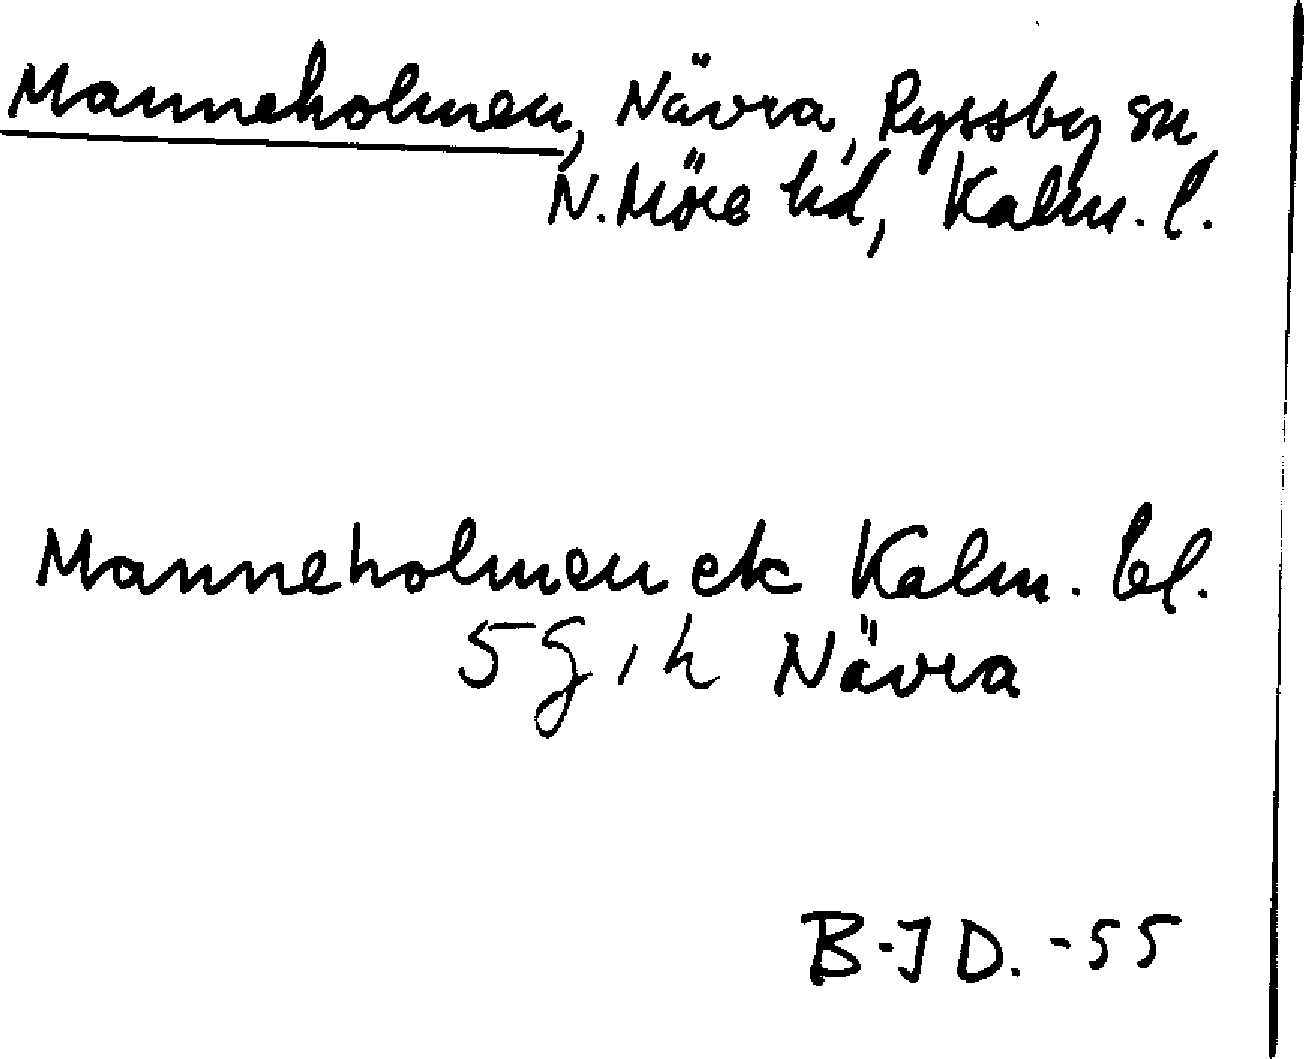 Manneholmen, Nävra, Ryssby sn
N. Möre hd, Kalm. l.
Manneholmen ek Kalm. bl.
5 g, h Nävra
B-J D. -55